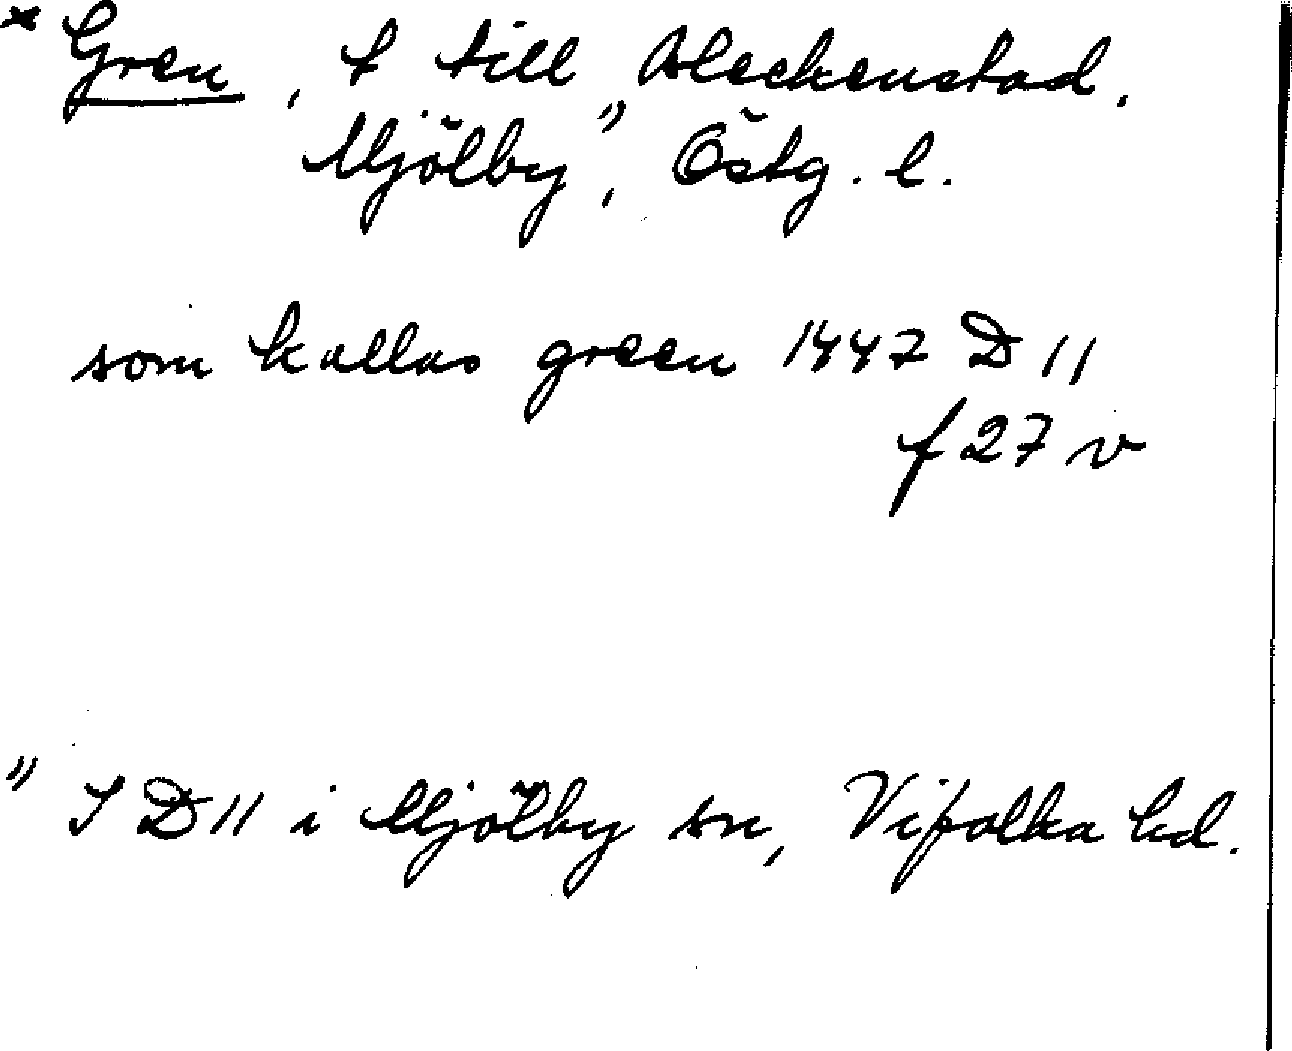 * Gren, t till Bleckenstad,
Mjölby", Östg. l.
som kallas green 1447 D 11
f 27 v
" I D 11 i Mjölby sn, Vifolka hd.